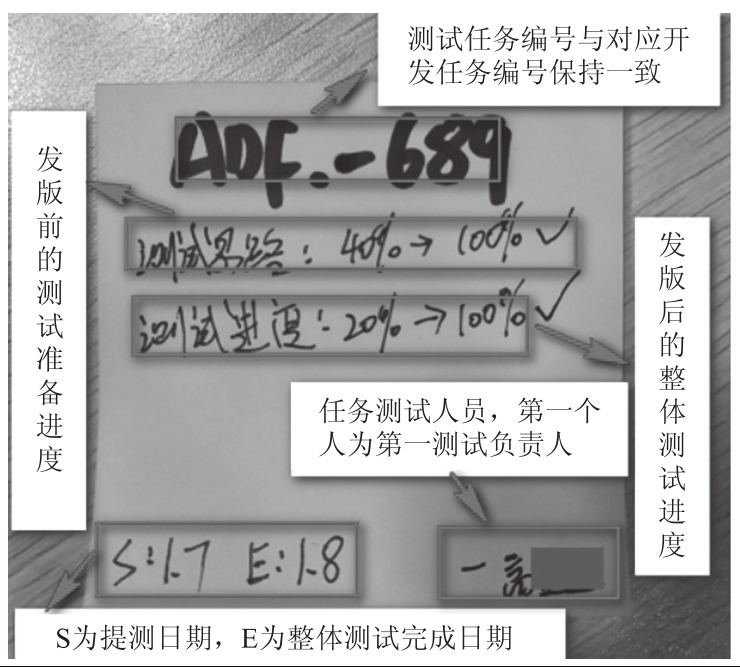 测试任务编号与对应开
发任务编号保持一致
ADF.-689
发版前的测试准备进度
测试思路：40%→100%✓
测试进度：20%→100%✓
发版后的整体测试进度
任务测试人员，第一个
人为第一测试负责人
S:1.7 E:1.8
一
S为提测日期，E为整体测试完成日期